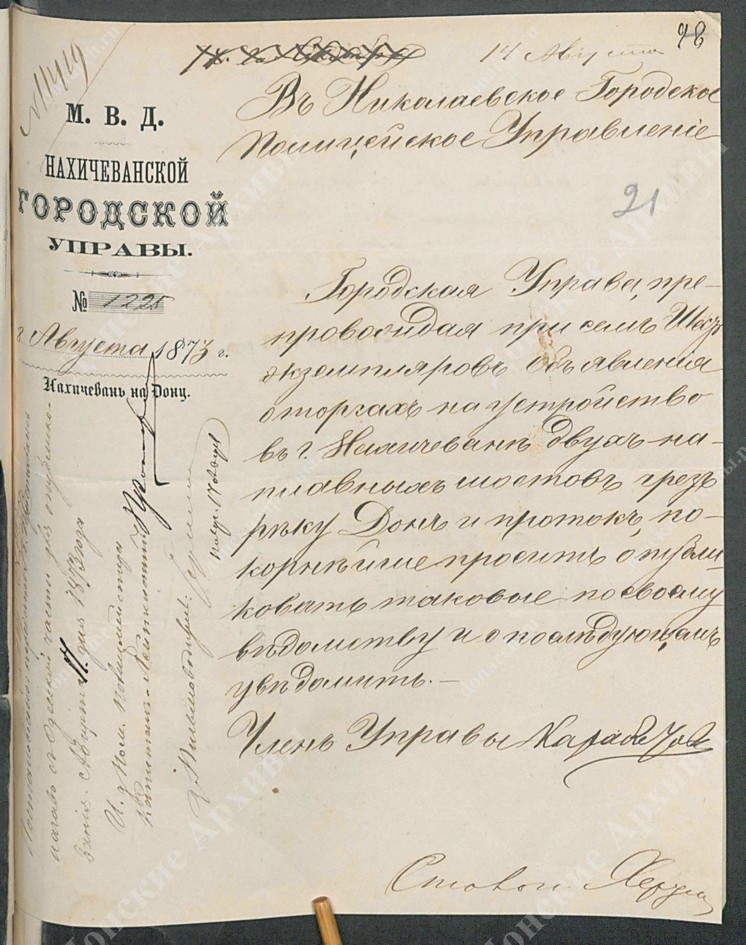 14 Августа
98
N 11419
М. В. Д.
НАХИЧЕВАНСКОЙ
ГОРОДСКОЙ
УПРАВЫ.
№ 1225
Августа 1873 г.
Нахичевань на Дону.
Въ Николаевское Городское
Полицейское Управленіе
21
Городская Управа, пре-
провождая при семъ Шесть
экземпляровъ объявленія
о торгахъ на устройство
въ г. Нахичевани двухъ на-
плавныхъ мостовъ чрезъ
рѣку Донъ и протокъ, по-
корнѣйше проситъ опубли-
ковать таковые по своему
вѣдомству и о послѣдующемъ
увѣдомить.-
Членъ Управы
Августа 17 дня 1873 года
И. д. Пол.
Капитанъ-Лейтенантъ